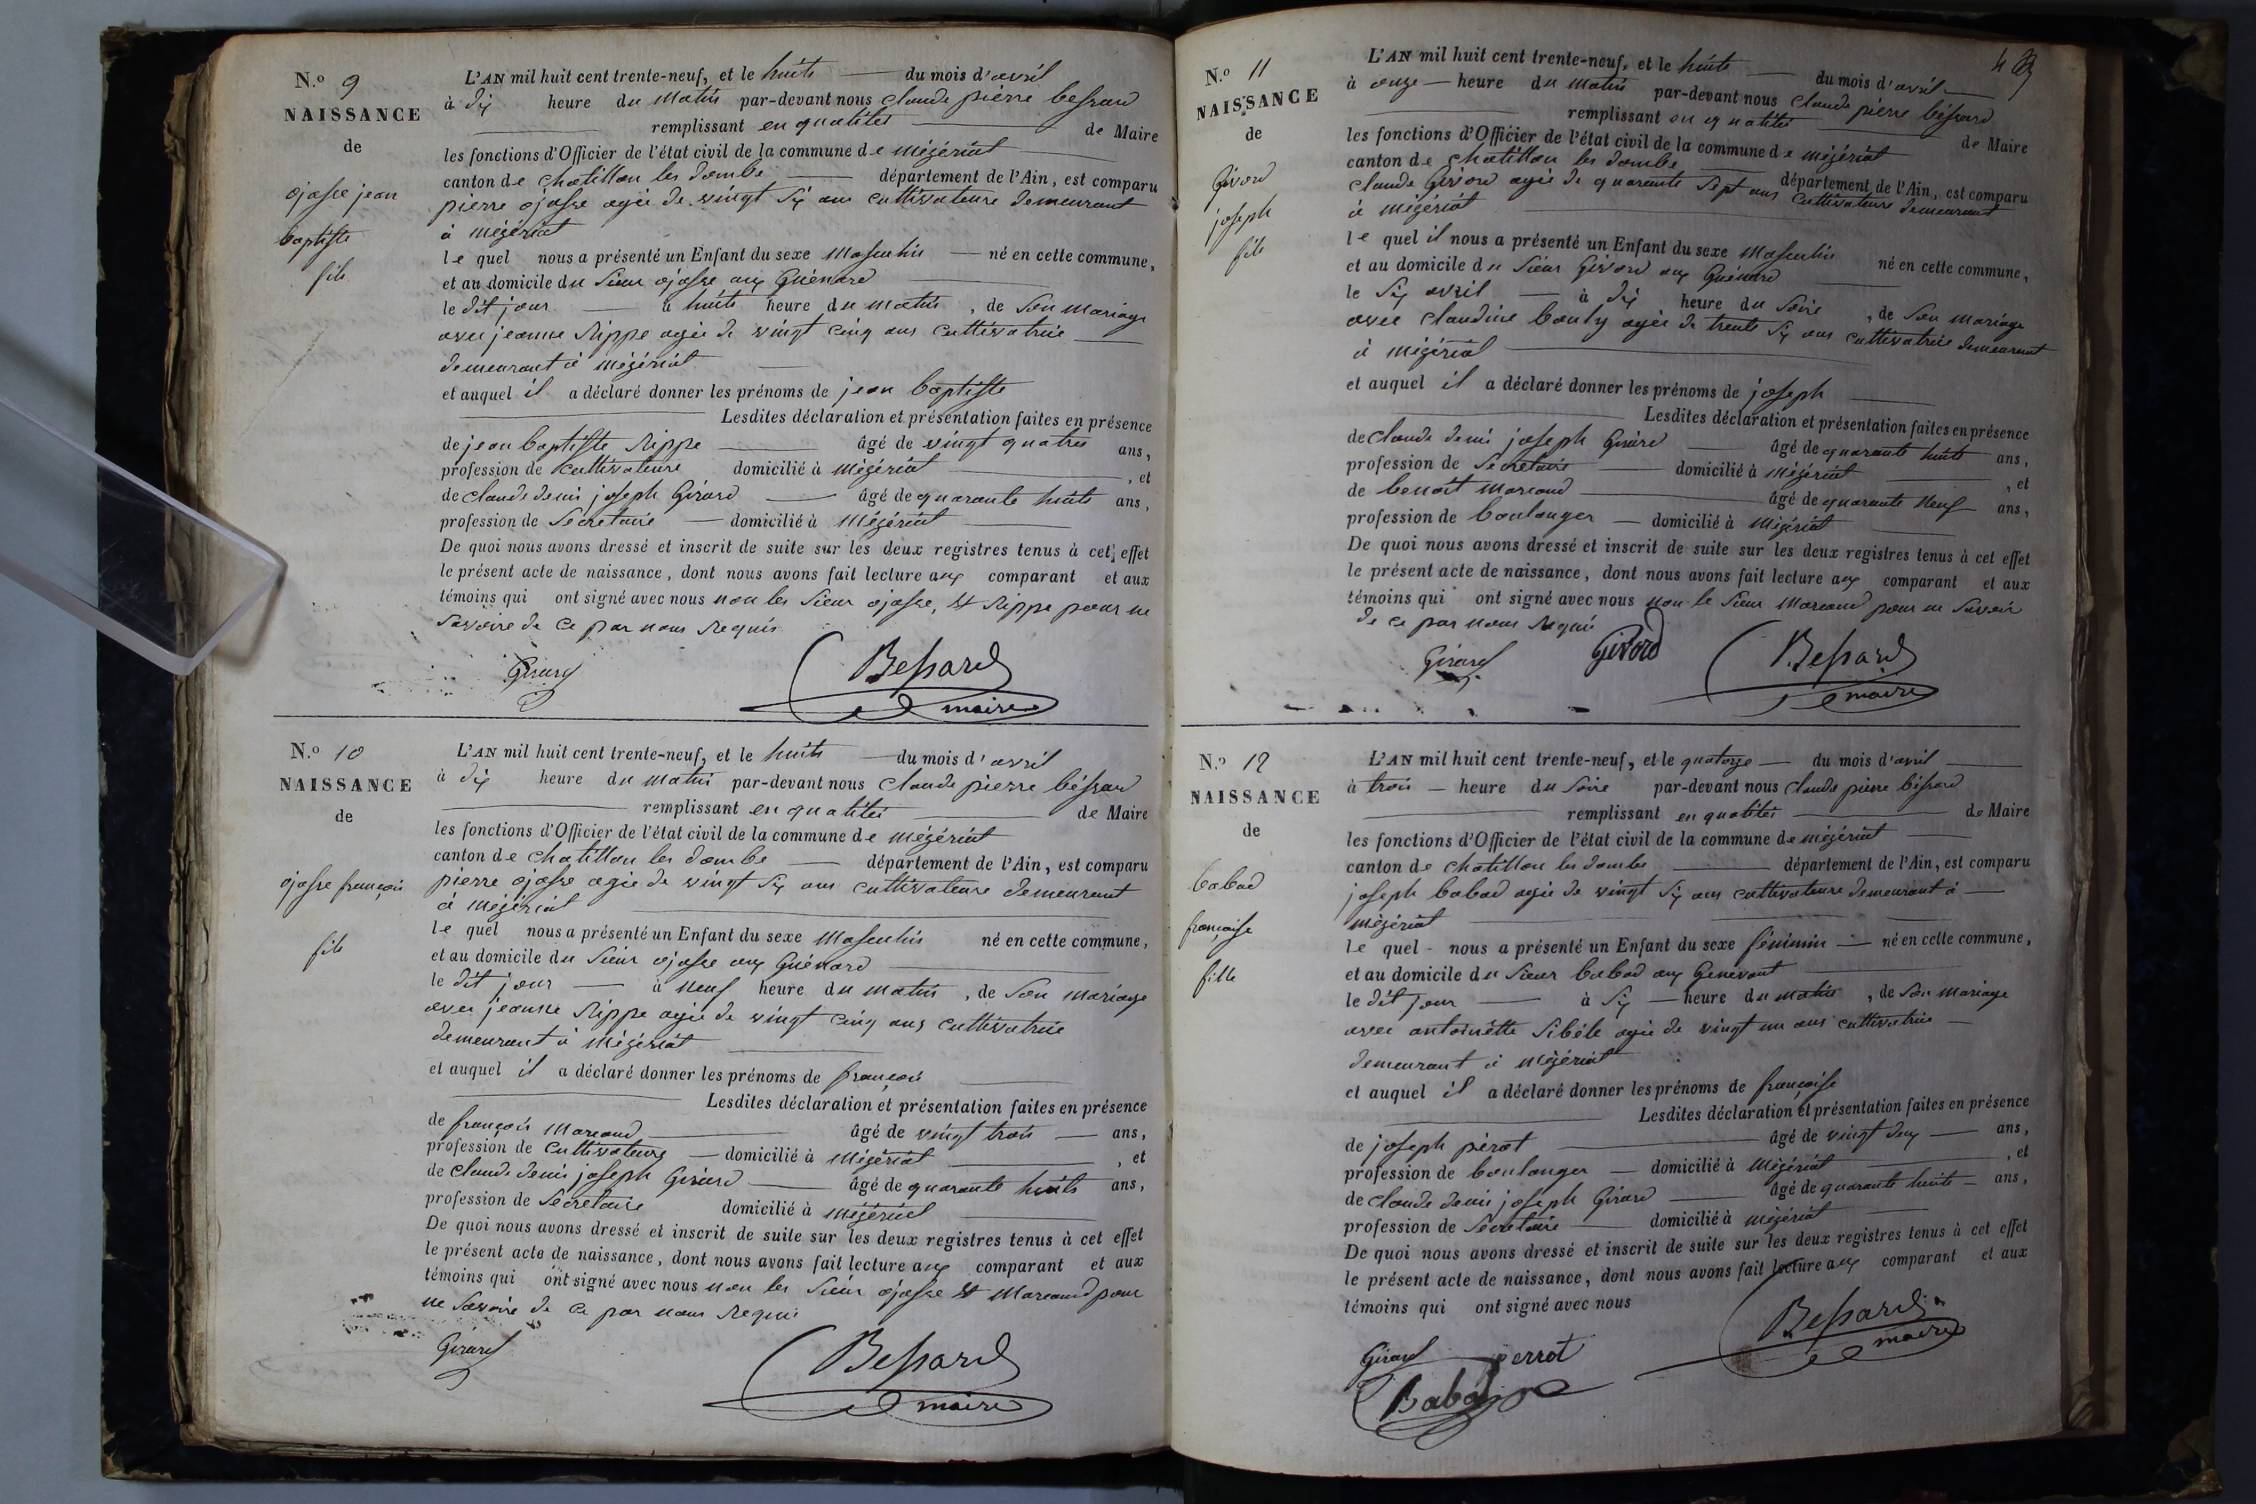 N.o 9
NAISSANCE
de
ojasse jean
baptiste
fils
L'AN mil huit cent trente-neuf, et le huits du mois d'avril
à dix heure du matin par-devant nous claude pierre bessard
remplissant en qualités de Maire
les fonctions d'Officier de l'état civil de la commune de mézériat
canton de chatillon les dombe département de l'Ain, est comparu
pierre ojasse agée de vingt six ans cultivateure demeurant
à mézériat
le quel nous a présenté un Enfant du sexe masculin né en cette commune,
et au domicile du sieur ojasse aux Guénard
le dit jour à huits heure du matin, de son mariage
avec jeanne Rippe agée de vingt cinq ans cultivatrice
demeurant à mézériat
et auquel il a déclaré donner les prénoms de jean baptiste
Lesdites déclaration et présentation faites en présence
de jean baptiste Rippe âgé de vingt quatres ans,
profession de cultivateure domicilié à mézériat, et
de claude denis joseph Girard âgé de quarante huits ans,
profession de Secretaire domicilié à mézériat
De quoi nous avons dressé et inscrit de suite sur les deux registres tenus à cet effet
le présent acte de naissance, dont nous avons fait lecture aux comparant et aux
témoins qui ont signé avec nous non les sieur ojasse, et Rippe pour ne
savoire de ce par nous requis
Girard Bessard
maire
N.o 10
NAISSANCE
de
ojasse françois
fils
L'AN mil huit cent trente-neuf, et le huits du mois d'avril
à dix heure du matin par-devant nous claude pierre béssard
remplissant en qualités de Maire
les fonctions d'Officier de l'état civil de la commune de mézériat
canton de chatillon les dombe département de l'Ain, est comparu
pierre ojasse agée de vingt six ans cultivateure demeurant
à mézériat
le quel nous a présenté un Enfant du sexe masculin né en cette commune,
et au domicile du sieur ojasse aux Guénard
le dit jour à neuf heure du matin, de son mariage
avec jeanne Rippe agée de vingt cinq ans cultivatrice
demeurant à mézériat
et auquel il a déclaré donner les prénoms de françois
Lesdites déclaration et présentation faites en présence
de françois moreaud âgé de vingt trois ans,
profession de cultivateure domicilié à mézériat, et
de claude denis joseph Girard âgé de quarante huits ans,
profession de Secretaire domicilié à mézériat
De quoi nous avons dressé et inscrit de suite sur les deux registres tenus à cet effet
le présent acte de naissance, dont nous avons fait lecture aux comparant et aux
témoins qui ont signé avec nous non les sieur ojasse et moreaud pour
ne savoire de ce par nous requis
Girard Bessard
maire
4
N.o 11
NAISSANCE
de
Givord
joseph
fils
L'AN mil huit cent trente-neuf, et le huits du mois d'avril
à onze heure du matin par-devant nous claude pierre béssard
remplissant en qualités de Maire
les fonctions d'Officier de l'état civil de la commune de mézériat
canton de chatillon les dombe département de l'Ain, est comparu
claude Givord agée de quarante sept ans cultivateure demeurant
à mézériat
le quel il nous a présenté un Enfant du sexe masculin né en cette commune,
et au domicile du sieur Givord aux Guénard
le six avril à dix heure du soire, de son mariage
avec claudine bouly agée de trente six ans cultivatrice demeurant
à mézériat
et auquel il a déclaré donner les prénoms de joseph
Lesdites déclaration et présentation faites en présence
de claude denis joseph Girard âgé de quarante huits ans,
profession de Secretaire domicilié à mézériat, et
de benoit moreaud âgé de quarante neuf ans,
profession de boulanger domicilié à mézériat
De quoi nous avons dressé et inscrit de suite sur les deux registres tenus à cet effet
le présent acte de naissance, dont nous avons fait lecture aux comparant et aux
témoins qui ont signé avec nous non le sieur moreaud pour ne savoir
de ce par nous requis
Girard Givord Bessard
maire
N.o 12
NAISSANCE
de
babad
françoise
fille
L'AN mil huit cent trente-neuf, et le quatorze du mois d'avril
à trois heure du soire par-devant nous claude pierre béssard
remplissant en qualités de Maire
les fonctions d'Officier de l'état civil de la commune de mézériat
canton de chatillon les dombe département de l'Ain, est comparu
joseph babad agée de vingt six ans cultivateure demeurant à
mézériat
le quel nous a présenté un Enfant du sexe féminin né en cette commune,
et au domicile du sieur babad aux Genevont
le dit jour à six heure du matin, de son mariage
avec antoinétte Sibéle agée de vingt un ans cultivatrice
demeurant à mézériat
et auquel il a déclaré donner les prénoms de françoise
Lesdites déclaration et présentation faites en présence
de joseph pérot âgé de vingt deux ans,
profession de boulanger domicilié à mézériat, et
de claude denis joseph Girard âgé de quarante huits ans,
profession de Secretaire domicilié à mézériat
De quoi nous avons dressé et inscrit de suite sur les deux registres tenus à cet effet
le présent acte de naissance, dont nous avons fait lecture aux comparant et aux
témoins qui ont signé avec nous
Girard perrot Bessard
maire
Babad